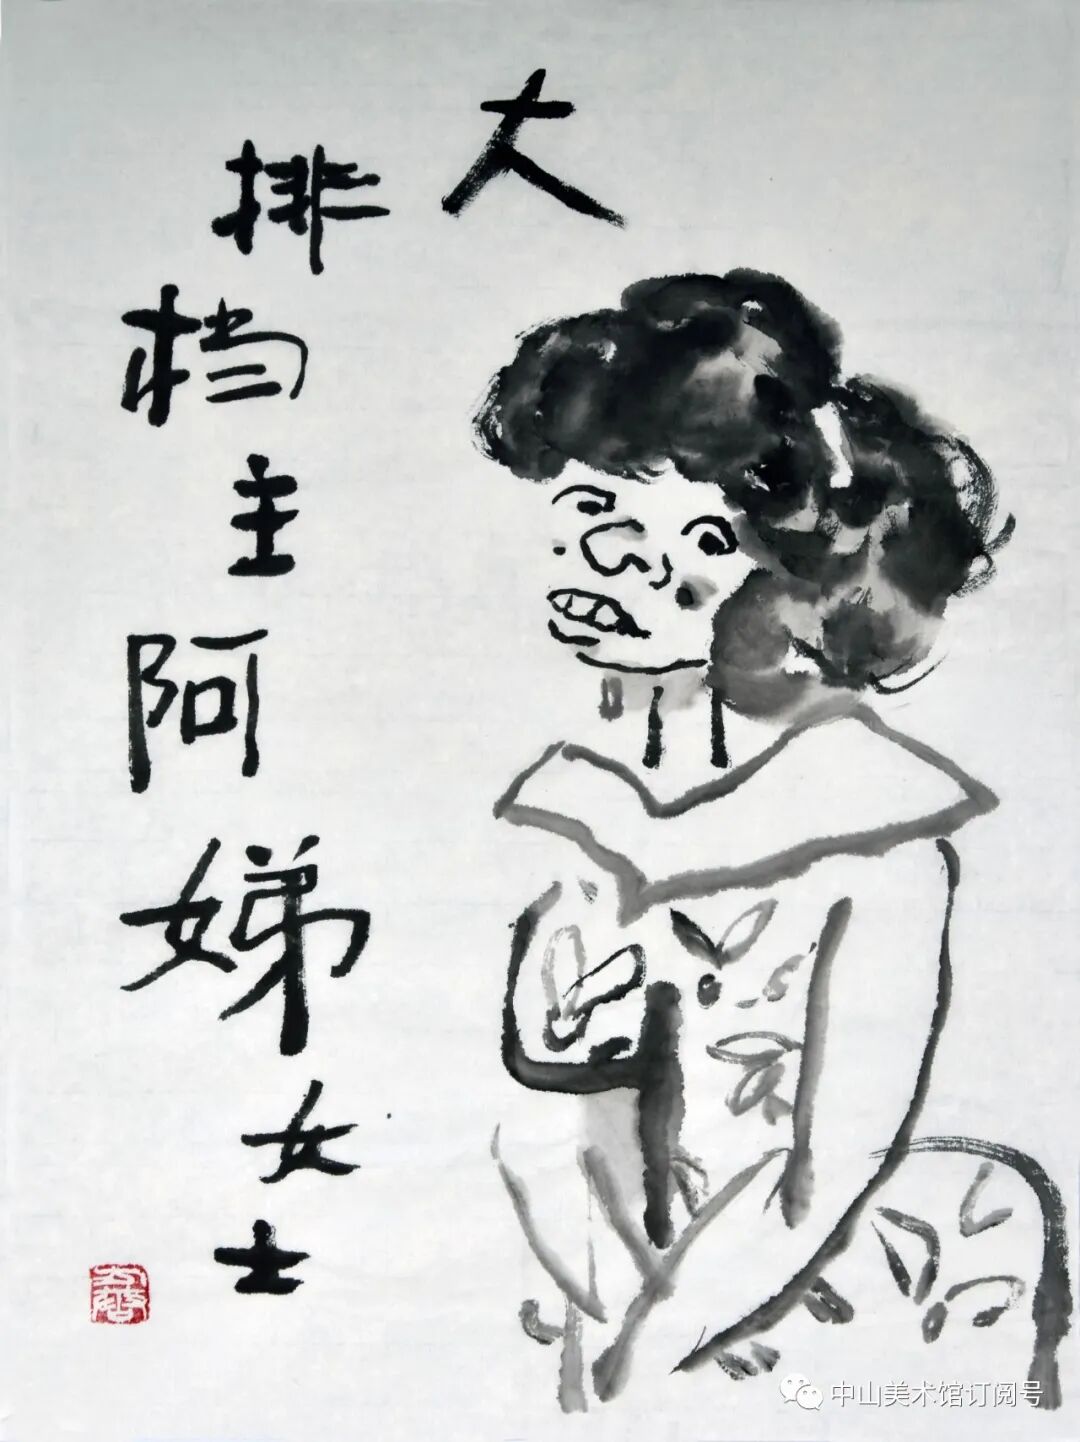 大
排档主阿娣女士
中山美术馆订阅号